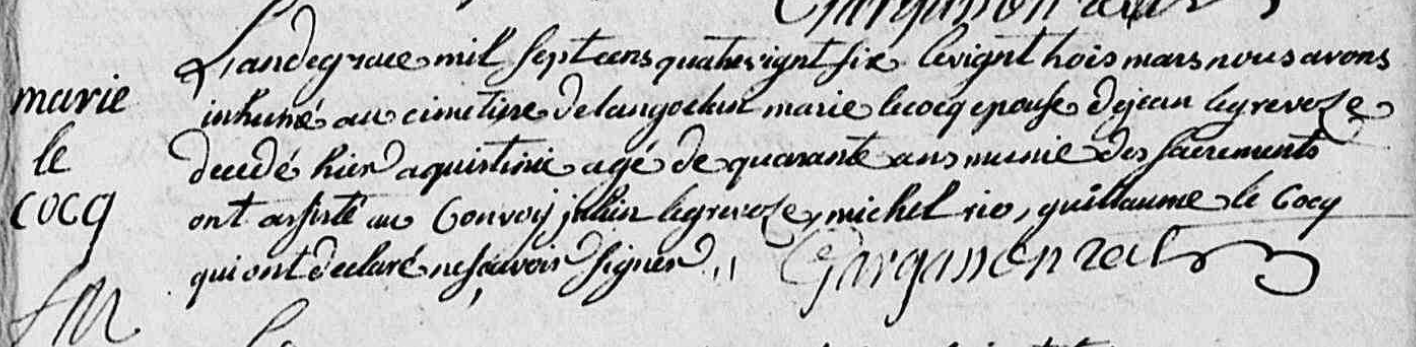 L'an de grace mil sept cens quatrevignt six le vignt trois mars nous avons
marie
inhumé au cimetiere de langoelan marie le cocq epouse de jean le greveze
le
decedé hier a quistinic agé de quarante ans munie des sacrements
cocq
ont assisté au convoy julien le greveze, michel rio, guillaume le Cocq
qui ont declaré ne savoir signer ,, Gargasson rect